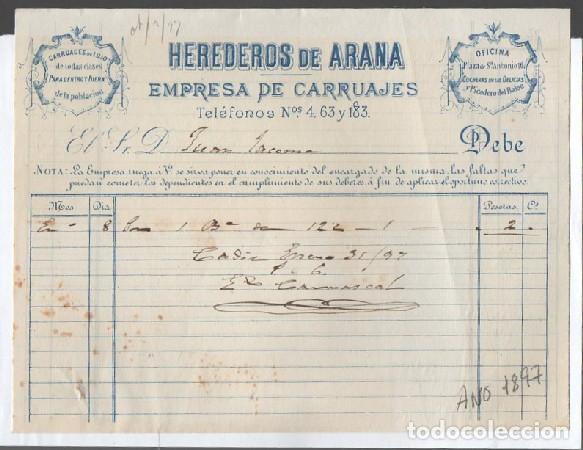 CARRUAGES DE LUJO
de todas clases
PARA CENTRO Y AFUERA
de la poblacion
HEREDEROS DE ARANA
EMPRESA DE CARRUAJES
Teléfonos Nos 4, 63 y 183.
OFICINA
Plaza Sn Antonio
COCHERAS EN LA
y Picadero del Balon
El Sr. D. Juan Lacome Debe
NOTA: La Empresa ruega á V. se sirva poner en conocimiento del encargado de la misma, las faltas que
puedan cometer los dependientes en el cumplimiento de sus deberes á fin de aplicar el oportuno correctivo.
Mes Dia Pesetas Cs
En 8 1 122 - 1 - 2
Cadiz Enero 31/97
Carrascal
AÑO 1897
todocoleccion
todocoleccion.net